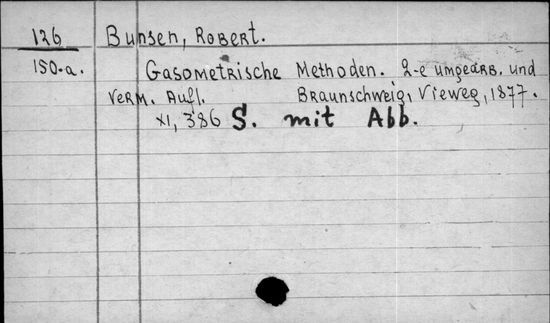 126 Bunsen, Robert.
150-a. Gasometrische Methoden. 2-e umgearb. und
verm. Aufl. Braunschweig, Vieweg, 1877.
XI, 386 S. mit Abb.